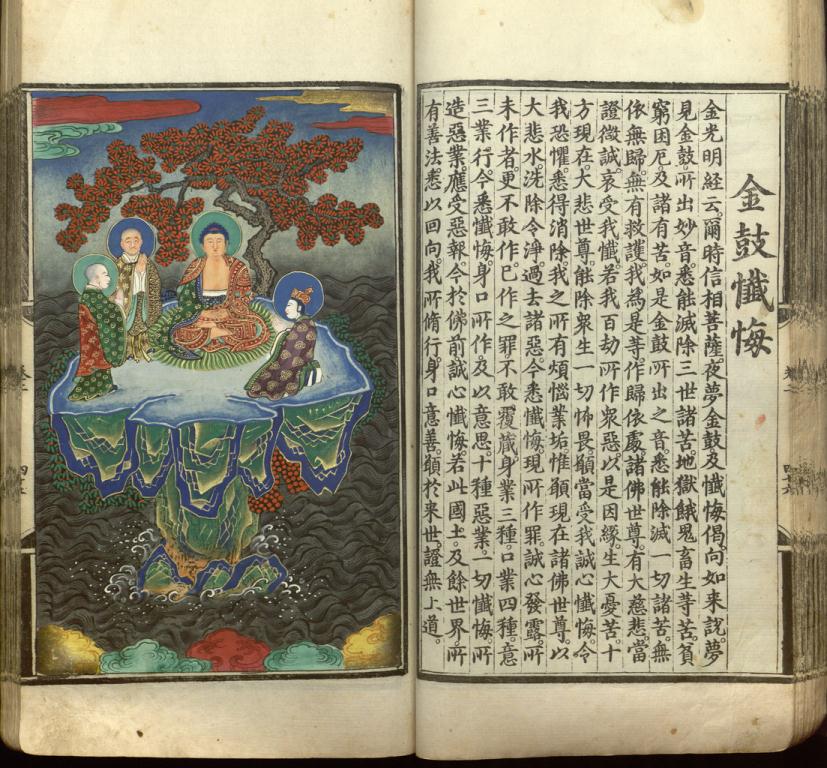 金鼓懺悔
金光明経云。爾時信相菩薩。夜夢金鼓及懺悔偈。向如来說。夢
見金鼓。所出妙音。悉能滅除三世諸苦。地獄餓鬼畜生等苦。貧
窮困厄。及諸有苦。如是金鼓所出之音。悉能除滅一切諸苦。無
依無歸。無有救護。我為是等。作歸依處。諸佛世尊。有大慈悲。當
證微誠。哀受我懺。若我百劫所作衆惡。以是因緣。生大憂苦。十
方現在。大悲世尊。能除衆生一切怖畏。願當受我誠心懺悔。令
我恐懼。悉得消除。我之所有煩惱業垢。惟願現在諸佛世尊。以
大悲水。洗除令淨。過去諸惡。今悉懺悔。現所作罪。誠心發露。所
未作者。更不敢作。已作之罪。不敢覆藏。身業三種。口業四種。意
三業行。今悉懺悔。身口所作。及以意思。十種惡業。一切懺悔。所
造惡業。應受惡報。今於佛前誠心懺悔。若此國土。及餘世界。所
有善法。悉以回向。我所脩行。身口意善。願於来世。證無上道。